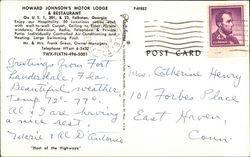 HOWARD JOHNSON'S MOTOR LODGE
& RESTAURANT
On U. S. 1, 301, & 23, Folkston, Georgia
Enjoy our Hospitality. 50 Luxurious rooms
with wall-to-wall Carpet, Ceiling to Floor
windows, Television, Radio, Telephone & Private
Patio. Individually Controlled Air-Conditioning and
Heating. Large Swimming Pool.
Mr. & Mrs. Frank Gross, Owner-Managers
Telephone HYatt 6-2482
TWX-FLKTN-496-5001
POST CARD
Greetings from Fort
Lauderdale, Fla.
Beautiful weather
Temp. 75° - 77°.
Al & I are having
a nice rest.
Marie & Al D'Antonio
"Host of the Highways"
Mrs. Catherine Henry
101 Forbes Place
East Haven,
Conn.